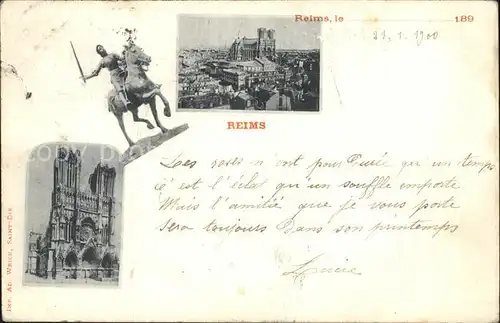 Reims, le 189
21. 1. 1900
REIMS
Les roses n'ont pour Durée qu'un temps
C'est l'éclat qu'un souffle emporte
Mais l'amitié que je vous porte
Sera toujours Dans son printemps
Lucie
IMP. AD. WEICK, SAINT-DIÉ